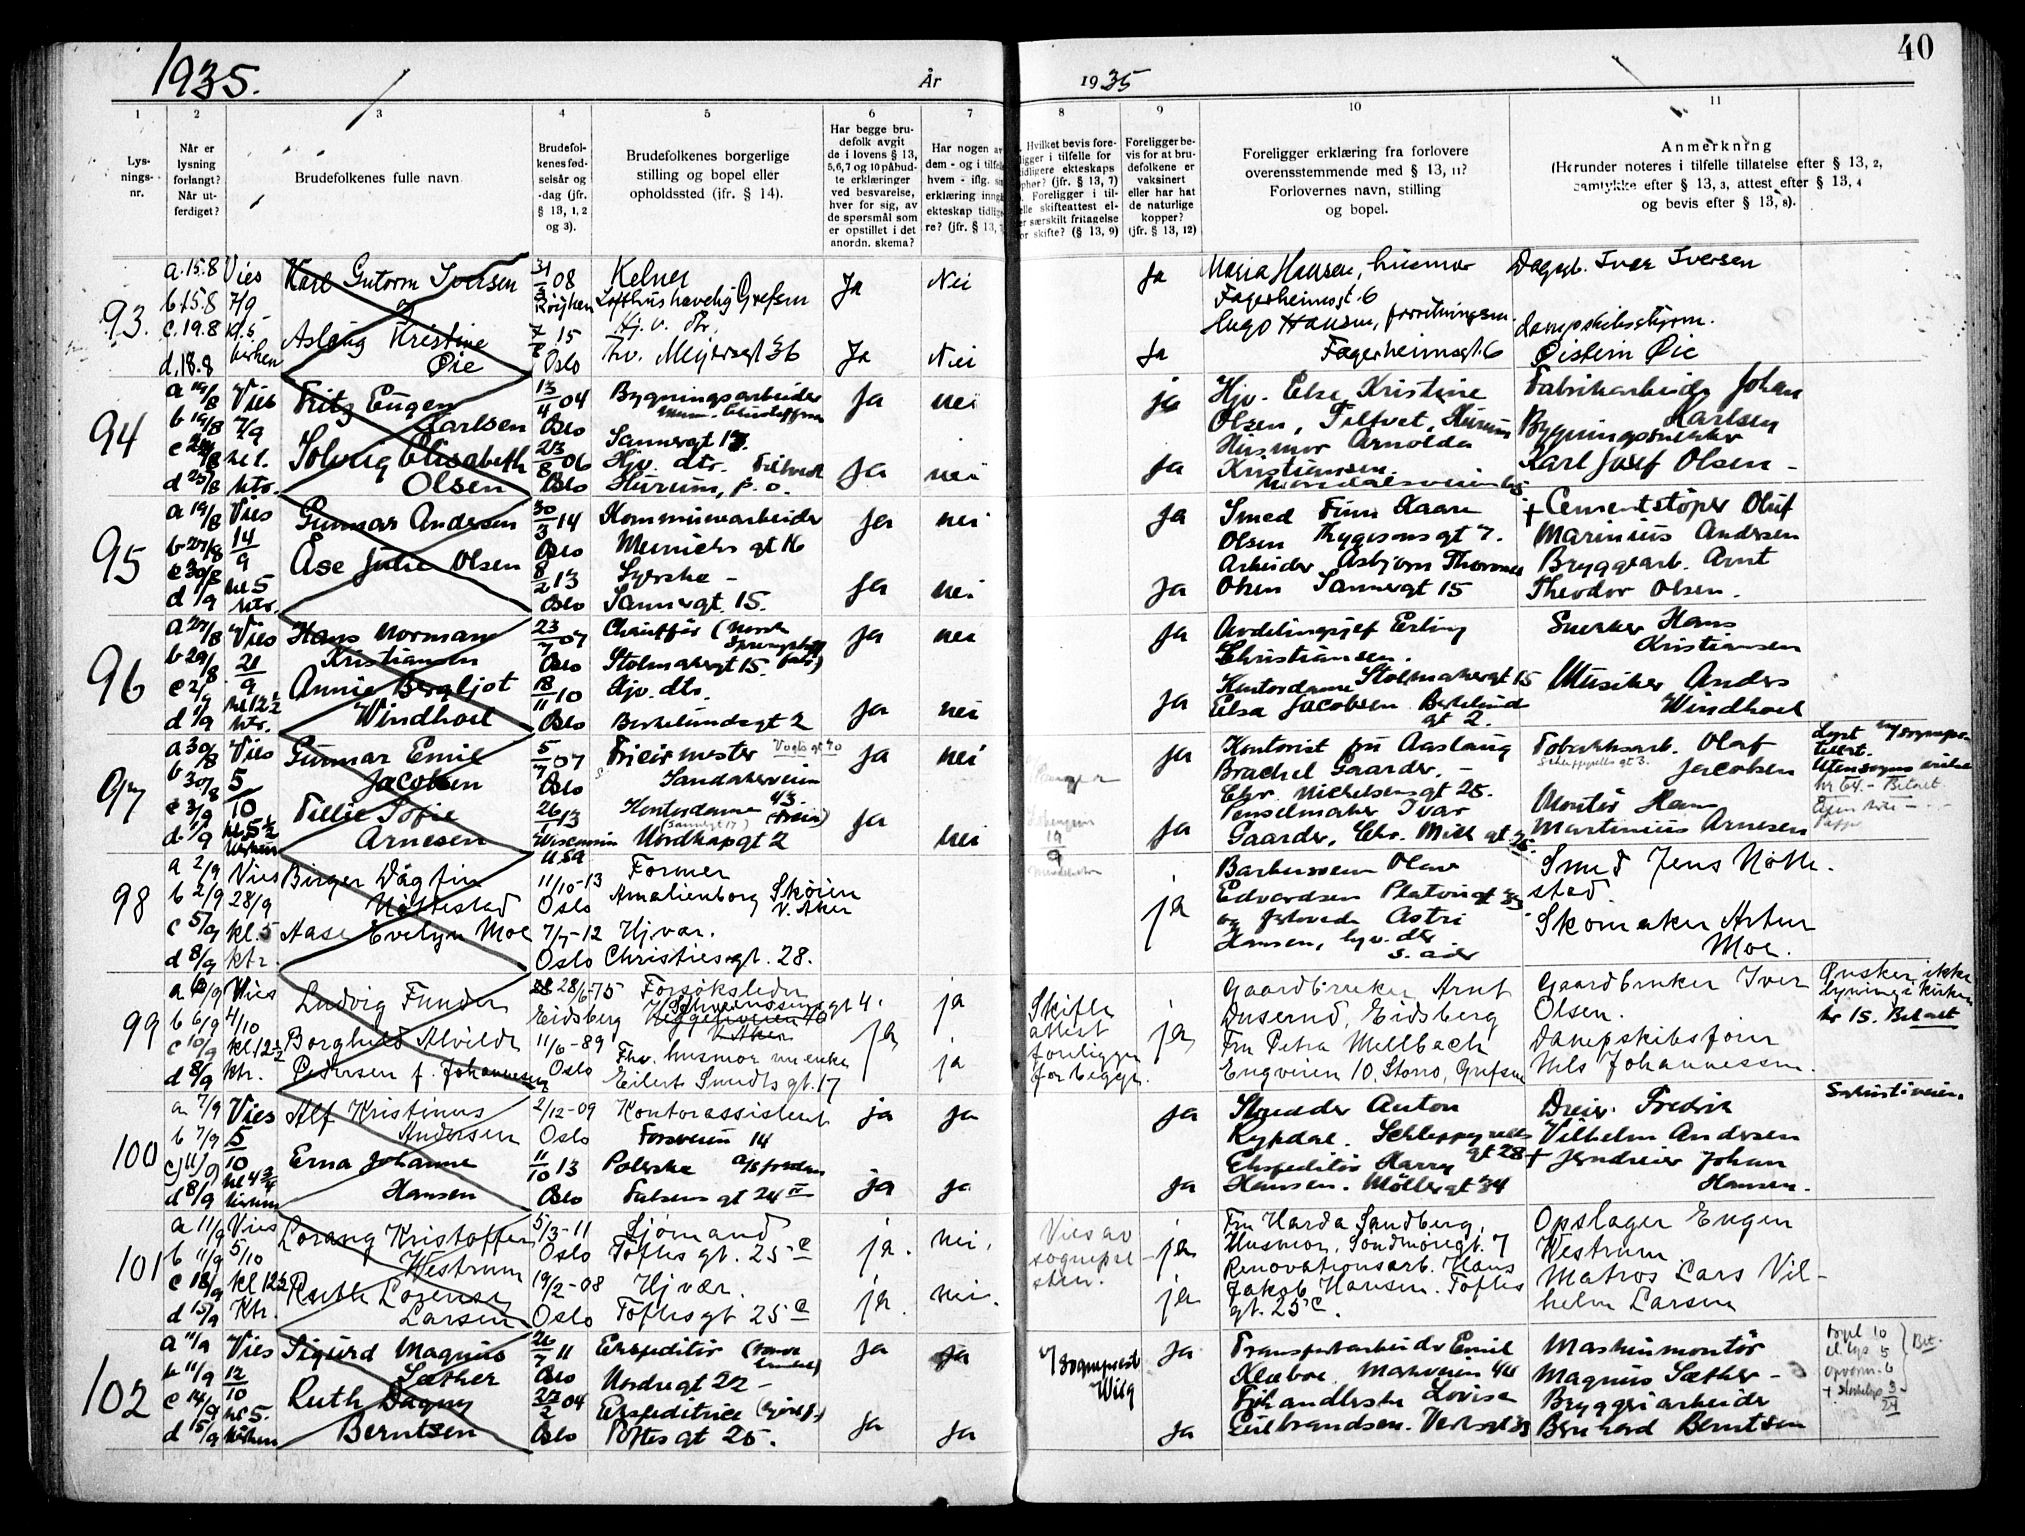 1935.
År
1935
40
1
2
3
4
5
6
7
8
9
10
11
Lys-
nings-
nr.
Når er
lysning
forlangt?
Når ut-
ferdiget?
Brudefolkenes fulle navn
Brudefol-
kenes fød-
selsår og
-dag (jfr.
§ 13, 1, 2
og 3).
Brudefolkenes borgerlige
stilling og bopel eller
opholdssted (jfr. § 14).
Har begge bru-
defolk avgit
de i lovens § 13,
5,6,7 og 10 påbud-
te erklæringer
ved besvarelse,
hver for sig, av
de spørsmål som
er opstillet i det
anordn. skema?
Har nogen av
dem - og i tilfelle
hvem - iflg.
erklæring inngå
ekteskap tidlige
re? (jfr. § 13,
Hvilket bevis fore-
ligger i tilfelle for
tidligere ekteskaps
ophør? (jfr. § 13, 7)
Foreligger i til-
felle skifteattest el-
ler særskilt fritagelse
for skifte? (§ 13, 9)
Foreligger be-
vis for at bru-
defolkene er
vaksinert
eller har hat
de naturlige
kopper?
(jfr. § 13, 12)
Foreligger erklæring fra forlovere
overensstemmende med § 13, 11?
Forlovernes navn, stilling
og bopel.
Anmerkning
(Herunder noteres i tilfelle tillatelse efter § 13, 2,
samtykke efter § 13, 3, attest efter § 13, 4
og bevis efter § 13, 8).
93.
a. 15.8 Vies
b. 15.8 7/9
c. 19.8 kl. 5
d. 18.8 kirken
Karl Gutorm Iversen
og
Aslaug Kristine
Øie
31/3 08
Røyken
7/8 15
Oslo
Kelner
Lofthus haveby Grefsen
Hj. v. dtr.
Thv. Meyersgt 36
Ja Nei
Ja Nei
Ja
Ja
Maria Hansen, husmor
Fagerheimsgt. 6
Hugo Hansen, forretningsm.
Fagerheimsgt. 6
Dagarb. Ivar Iversen
dampskibsstyrm.
Øistein Øie
94
a 19/8 Vies
b 19/8 7/9
kl 1.
d 23/8 ktr.
Fritz Eugen
Karlsen
Solveig Elisabeth
Olsen
13/4 04
Oslo
23/8 06
Oslo
Bygningsarbeider
Sannergt 17.
Hjv. dtr. Filtvedt
Hurum, p.o.
Ja nei
Ja nei
ja
Ja
Hjv. Else Kristine
Olsen, Filtvet, Hurum
Husmor Arnolda
Kristiansen.
Fabrikarbeider Johan
Karlsen
Bygningssnekker
Karl Josef Olsen -
95
a 19/8 Vies
b 27/8 14/9
c 30/8 kl 5
d 1/9 ktr.
Gunnar Andersen
Åse Julie Olsen
30/3 14
Oslo
8/2 13
Oslo
Kommunearbeider
Meinichs gt 16
Syerske -
Sannergt. 15.
Ja nei
Ja nei
Ja
Ja
Smed Finn Kaare
Olsen Thygesons gt 7.
Arbeider Asbjørn
Olsen Sannergt 15
+ Cementstøper Oluf
Marinius Andersen
Bryggearb. Arnt
Theodor Olsen.
96
a 27/8 Vies
b 29/8 21/9
c 2/9 kl 12½
d 1/9 ktr.
Hans Norman
Kristiansen
Annie Bergljot
Windhoel
23/7 07
Oslo
18/11 10
Oslo
Chauffør (Norsk
Sprængstoff
Stolmakergt 15.
Hjv. dtr.
Berkelundsgt 2
Ja nei
Ja nei
Ja
Ja
Avdelingssjef Erling
Christiansen.
Stolmakergt 15
Kontordame
Elsa Jacobsen Berkelund
gt 2.
Snekker Hans
Kristiansen
Musiker Anders
Windhoel
97
a 30/8 Vies
b 30/8 5/10
c 3/9 kl 5½
d 1/9 kirken
Gunnar Emil
Jacobsen
Tillie Sofie
Arnesen
5/7 07
Oslo
26/ 13
Wisconsin
USA
Fricirmester Vogts gt 70
Sandakerveien
43.
Kontordame (Freia)
(Sannergt 17)
Nordkapgt 2
Ja nei
Ja nei
19/9
Ja
Ja
Kontorist fru Aaslaug
Brachel Gaarder. -
Chr. Michelsensgt 25.
Penselmaker Ivar
Gaarder, Chr. Mich gt 25.
Tobakksarb. Olaf
Schleppegrells gt 3. Jacobsen
Montør Hans
Martinius Arnesen
Utensogns
kr 64.- Betalt
98
a 2/9 Vies
b 2/9 28/9
c 5/9 kl. 5
d 8/9 ktr.
Birger Dagfin
Nøttestad
Aase Evelyn Moe
11/10-13
Oslo
7/7-12
Oslo
Former
Amalienborg Skøien
V. Aker
Hj vær.
Christiesgt. 28.
ja
Barbersvenn Olav
Edvardsen
og forlovede Astri
Hansen, hjv. dtr
s. adr
Smed Jens Nøtte-
stad
Skomaker Artur
Moe.
99
a 6/9 Vies
b 6/9 4/10
c 10/9 kl 12½
d 8/9 ktr.
Ludvig Funder
Borghild Alvilde
Pedersen f. Johannesen
28/6-75
Eidsberg
11/6-89
Oslo
Forsøksleder
Fhv. husmor, m enke
Eilert Sundts gt. 17
ja
ja ja
Skifte
attest
foreligger
for begge.
ja
Gaardbruker Arnt
Duserud, Eidsberg
Fru Petra Mellbach
Engveien 10, Storo, Grefsen
Gaardbruker Iver
Olsen.
Dampskibsfører
Nils Johannessen.
Ønsker ikke
lysning i kirken
kr 15. Betalt
100
a 7/9 Vies
b 7/9 5/10
c 11/9 kl 4¾
d 8/9 kirken
Alf Kristinus
Andersen
Erna Johanne
Hansen
2/12-09
Oslo
11/10 13
Oslo
Kontorassistent
Forsveien 14
Polerske
Falsens gt 24 IV
ja ja
ja ja
Ja
Ja
Anton
Rypdal. Schleppegrells
gt 28
Ekspeditør Harry
Hansen. Møllergt 34
Dreier Fredrik
Vilhelm Andersen
+ Jerndreier Johan
Hansen.
101
a 11/9 Vies
b 11/9 5/10
c 18/9 kl 12½
d 15/9 Ktr.
Lorang Kristoffer
Westrum
Ruth Lorense
Larsen
5/3-11
Oslo
19/2-08
Oslo
Sjømand
Toftes gt. 25 c
Hj vær.
Toftes gt 25 c
ja. nei.
ja nei.
Vies av
sognepre
sten.
ja
ja
Fru Harda Sandberg,
Husmor, Søndmøregt. 7
Renovationsarb. Hans
Jakob Hansen. Toftes
gt. 25 c.
Opslager Eugen
Westrum
Matros Lars Vil-
helm Larsen
102
a 11/9 Vies
b 11/9 12/10
c 14/9 kl 5.
d 15/9 kirken
Sigurd Magnus
Sæther
Ruth Dagny
Berntsen
26/7 11
Oslo
22/2 04
Oslo
Ekspeditør
Nordregt 22 -
Ekspeditrice
Toftes gt 25.
Ja Ja
Ja Ja
v/ sogneprest
Wisg
Ja
Ja
Transportarbeider Emil
Klæboe. Markveien
Lovise
Gulbrandsen.
Maskinmontør
Magnus Sæther -
Bryggeriarbeider
Bernhard Berntsen
10
5
6
3
24
Bet.